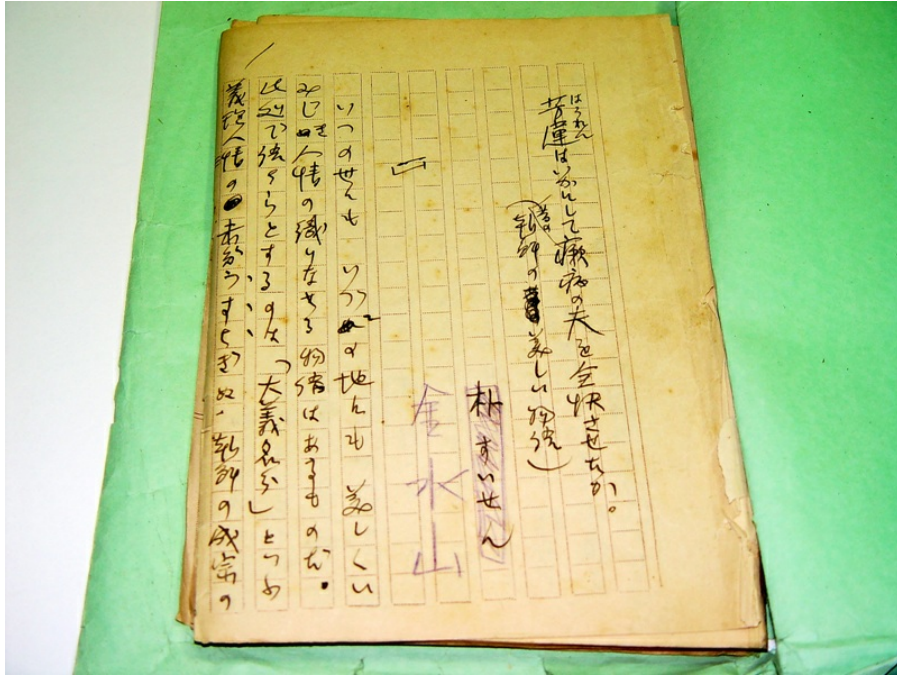 はうれん
芳蓮はいかにして癩病の夫を全快させたか。
(昔の朝鮮の美しい物語)
朴すいせん
金水山
一
いつの世にも いづこの地にも 美しくい
みじき人情の織りなせる物語はあるものだ。
此処で語らうとするのは「大義名分」と
義理人情の うすらぎぬ、朝鮮の成宗の